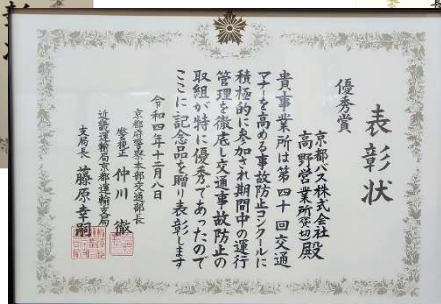 表彰状
優秀賞
京都バス株式会社
高野営業所 殿
貴事業所は第四十回交通
マナーを高める事故防止コンクールに
積極的に参加され期間中の運行
管理を徹底し交通事故防止の
取組が特に優秀であったので
ここに記念品を贈り表彰します
令和四年十二月八日
京都府警察本部交通部長
警視正 仲川 徹
近畿運輸局京都運輸支局
支局長 藤原幸嗣